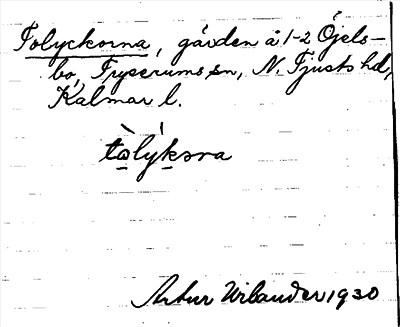 Tolyckorna, gården å 1-2 Öjels-
bo, Tryserums sn, N. Tjusts hd,
Kalmar l.
tòlýkora
Artur Wilander 1930